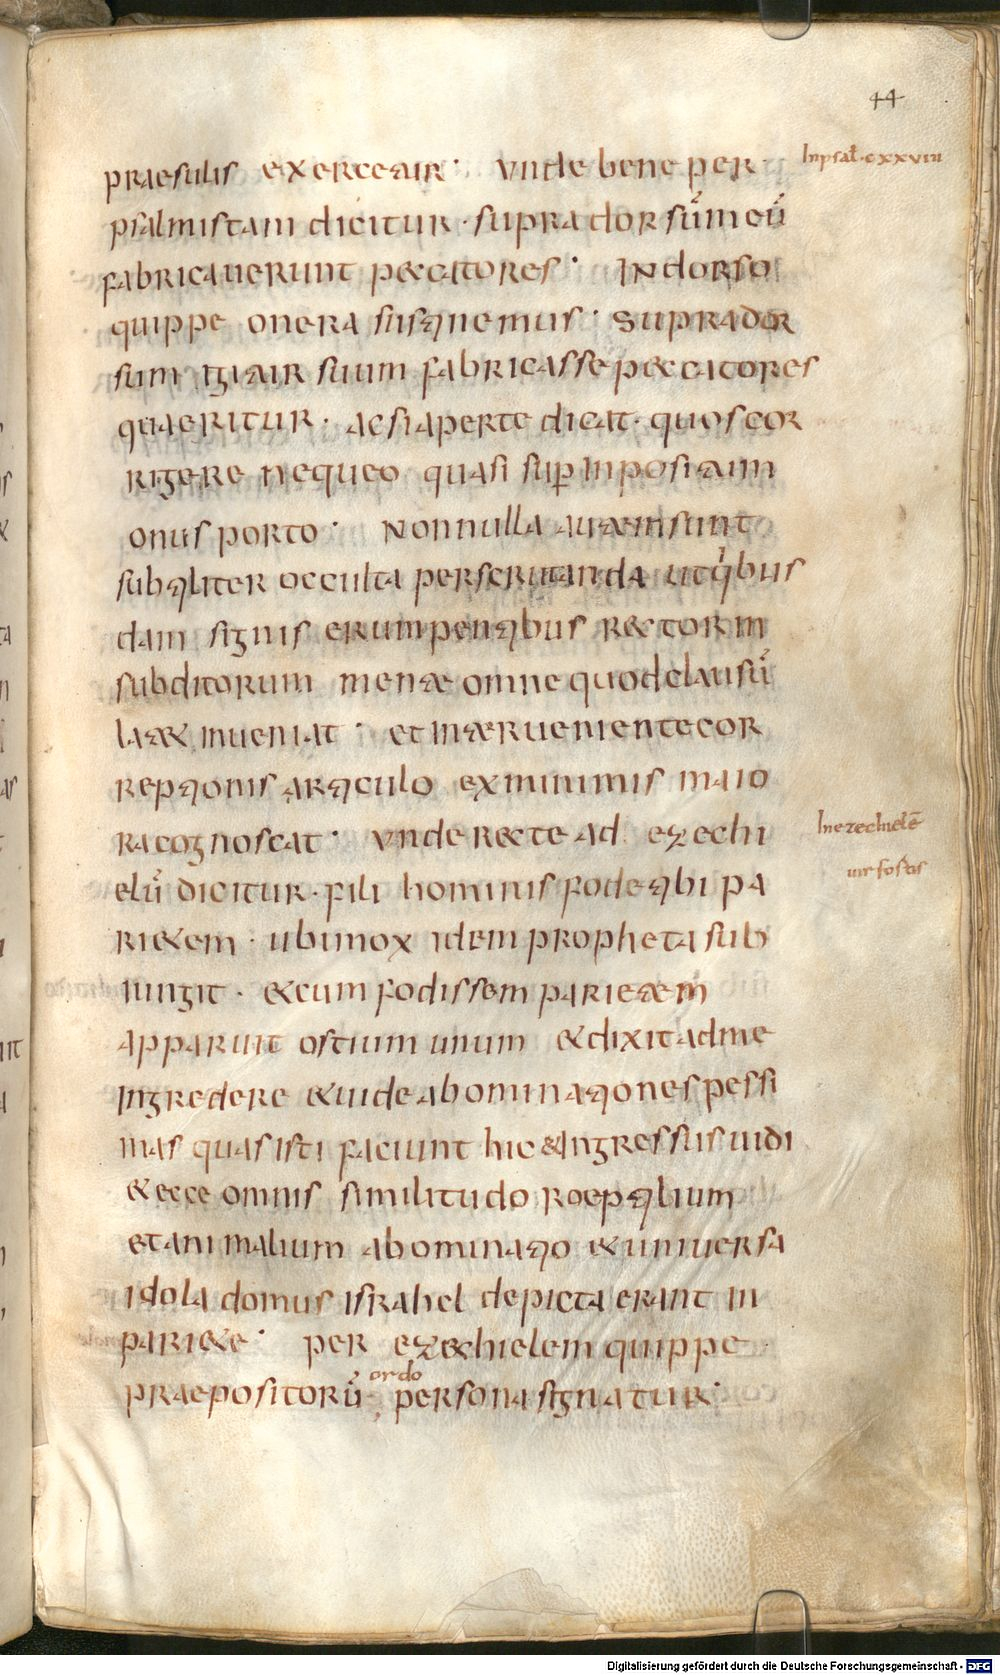 44
praesulis exerceatur· Unde bene per
In psal· cxxviii
psalmistam dicitur· supra dorsũ meũ
fabricauerunt peccatores· In dorso
quippe onera sustinemus· Supra dor
sum igitur suum fabricasse peccatores
quaeritur· ac si aperte dicat· quos cor
rigere nequeo quasi sup̱ inpositam
onus porto· Nonnulla autem sunt
subtiliter occulta perscrutanda ut qͥbus
dam signis erumpentibus rector in
subditorum mente omne quod clausũ
latet inueniat· et interueniente cor
reptionis articulo ex minimis maio
ra cognoscat· Unde recte ad ezechi
In ezechielẽ
elũ dicitur· fili hominis fode tibi pa
uir fostas
rietem· ubi mox idem propheta sub
iungit· & cum fodissem parietem
apparuit ostium unum & dixit ad me
Ingredere & uide abominationes pessi
mas quas isti faciunt hic & ingressus uidi
& ecce omnis similitudo roeptilium
et animalium abominatio & uniuersa
idola domus israhel depicta erant in
pariete· per ezechielem quippe
ordo
praepositorũ persona signatur·
Digitalisierung gefördert durch die Deutsche Forschungsgemeinschaft - DFG